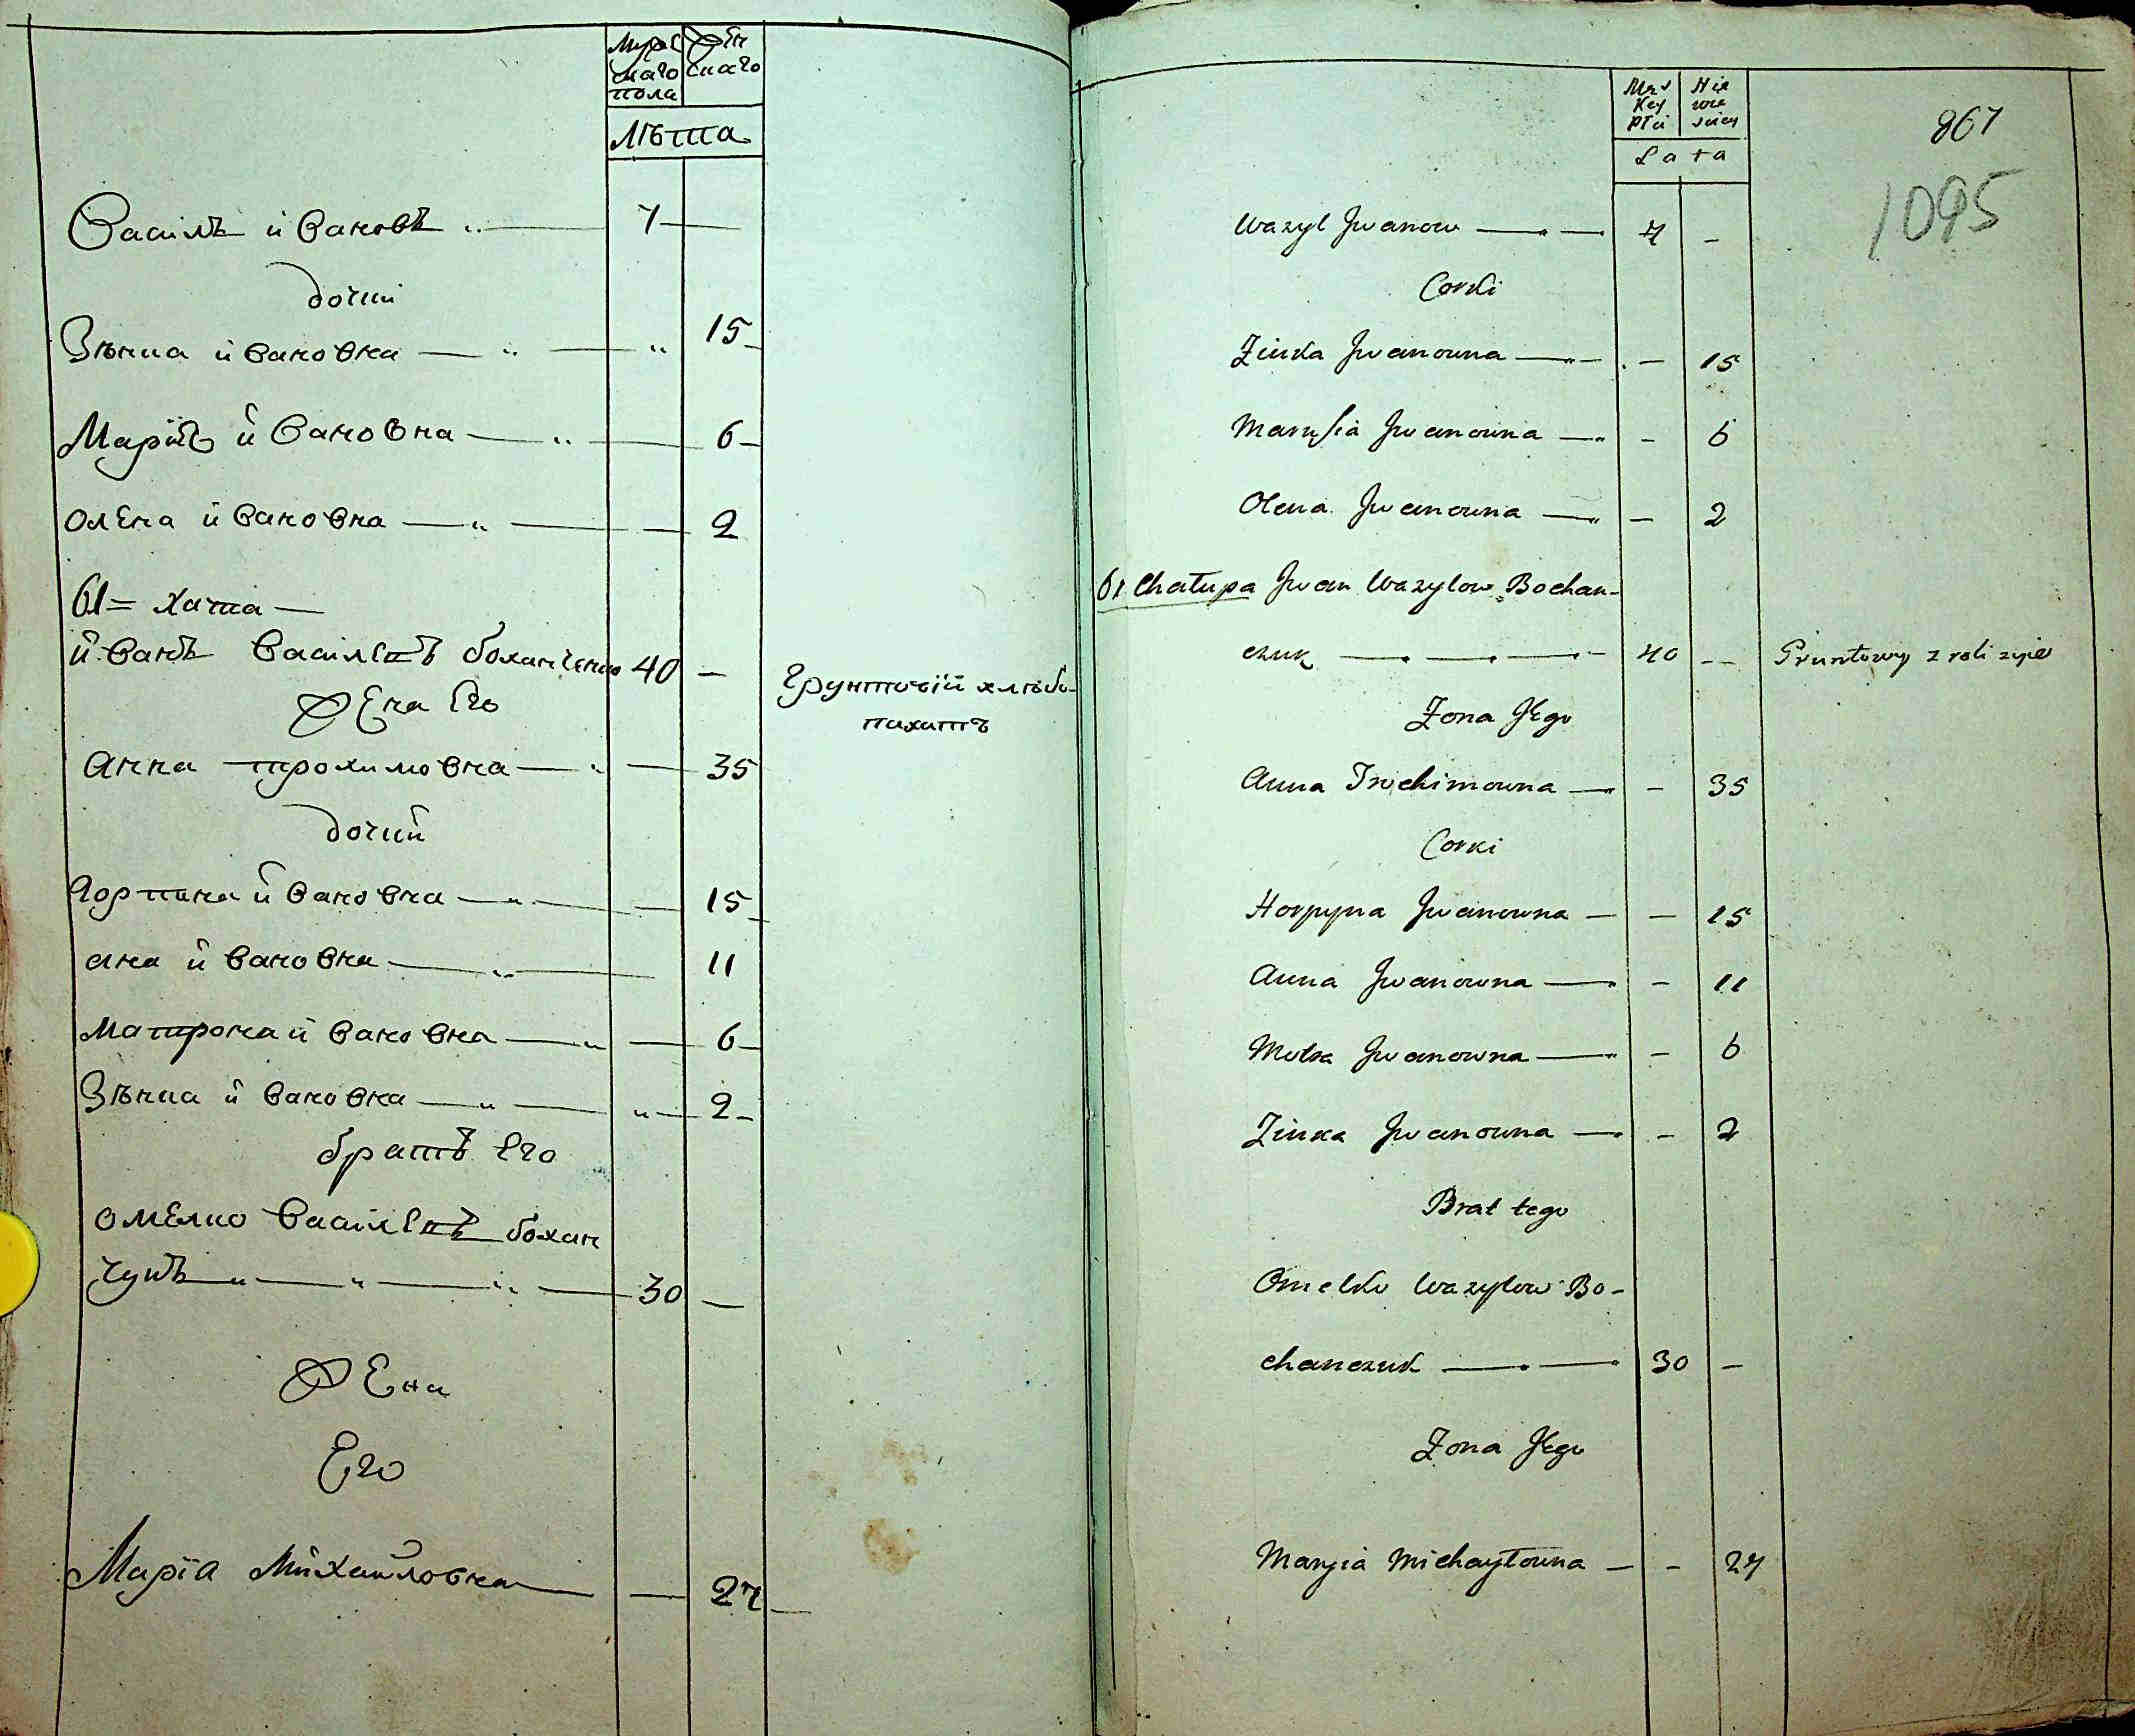 Мужс скаго пола
Женскаго
Лѣта
Василь йвановъ „ 7 —
дочки
Зѣнка йвановна — „ — „ 15
Марія йвановна — „ — 6
Олена йвановна — „ — 2
61 = хата —
йванъ Василевъ боханченко 40 —
Грунтовій хлѣбо-
пахатъ
Жена Его
Анна трохимовна — „ — 35
дочкй
Горпина йвановна — „ — 15
ана йвановна — „ — 11
Матрона йвановна — „ — 6
Зѣнка йвановна — „ — „ 2
братъ Его
Омелко Василевъ бохан
чукъ „ — „ — „ — 30 —
Жена
Его
Марія Михайловна — 27
Męs
Key
płci
Nie
wie
sciey
Lata
867
1095
Wazyl Jwanow — 7 —
Corki
Zinka Jwanowna — — 15
Marysia Jwanowna — — 6
Olena Jwanowna — — 2
61 Chałupa Jwan Wazylow Bochan-
czuk — — — 40 — Gruntowy z roli zyie
Zona Jego
Anna Trochimowna — — 35
Corki
Horpyna Jwanowna — — 15
Anna Jwanowna — — 11
Motra Jwanowna — — 6
Zinka Jwanowna — — 2
Brat tego
Omelko Wazylow Bo-
chanczuk — — 30 —
Zona Jego
Maryia Michayłowna — — 27